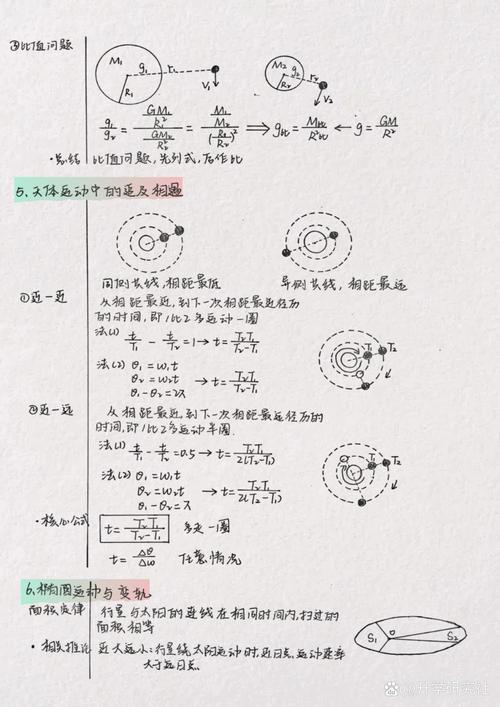 ③比值问题
M₁ g₁ r₁ R₁ V₁
M₂ g₂ r₂ R₂ V₂
g₁/g₂ = (GM₁/R₁²)/(GM₂/R₂²) = (M₁/M₂)/(R₁/R₂)² ⟹ g比 = M比/R²比 ← g = GM/R²
·总结 比值问题,先列式,后作比
5、天体运动中的追及相遇
同侧共线,相距最近
异侧共线,相距最远
①近一近
从相距最近,到下一次相距最近径历
的时间,即1比2多运动一圈
法(1) t/T₁ - t/T₂ = 1 → t = T₂T₁/(T₂-T₁)
法(2) θ₁=ω₁t
θ₂=ω₂t → t = T₂T₁/(T₂-T₁)
θ₁-θ₂=2π
T₁ T₂
②近一远
从相距最近,到下一次相距最远径历的
时间,即1比2多运动半圈.
法(1) t/T₁ - t/T₂ = 0.5 → t = T₂T₁/2(T₂-T₁)
法(2) θ₁=ω₁t
θ₂=ω₂t → t = T₂T₁/2(T₂-T₁)
θ₁-θ₂=π
T₁ T₂
·核心公式 t = T₂T₁/(T₂-T₁) 多走一圈
t = Δθ/Δω 任意情况
6、椭圆运动与变轨
面积定律 行星与太阳的连线在相同时间内,扫过的
面积相等
S₁ S₂
·相关推论 近大远小:行星绕太阳运动时,近日点运动速率
大于远日点.